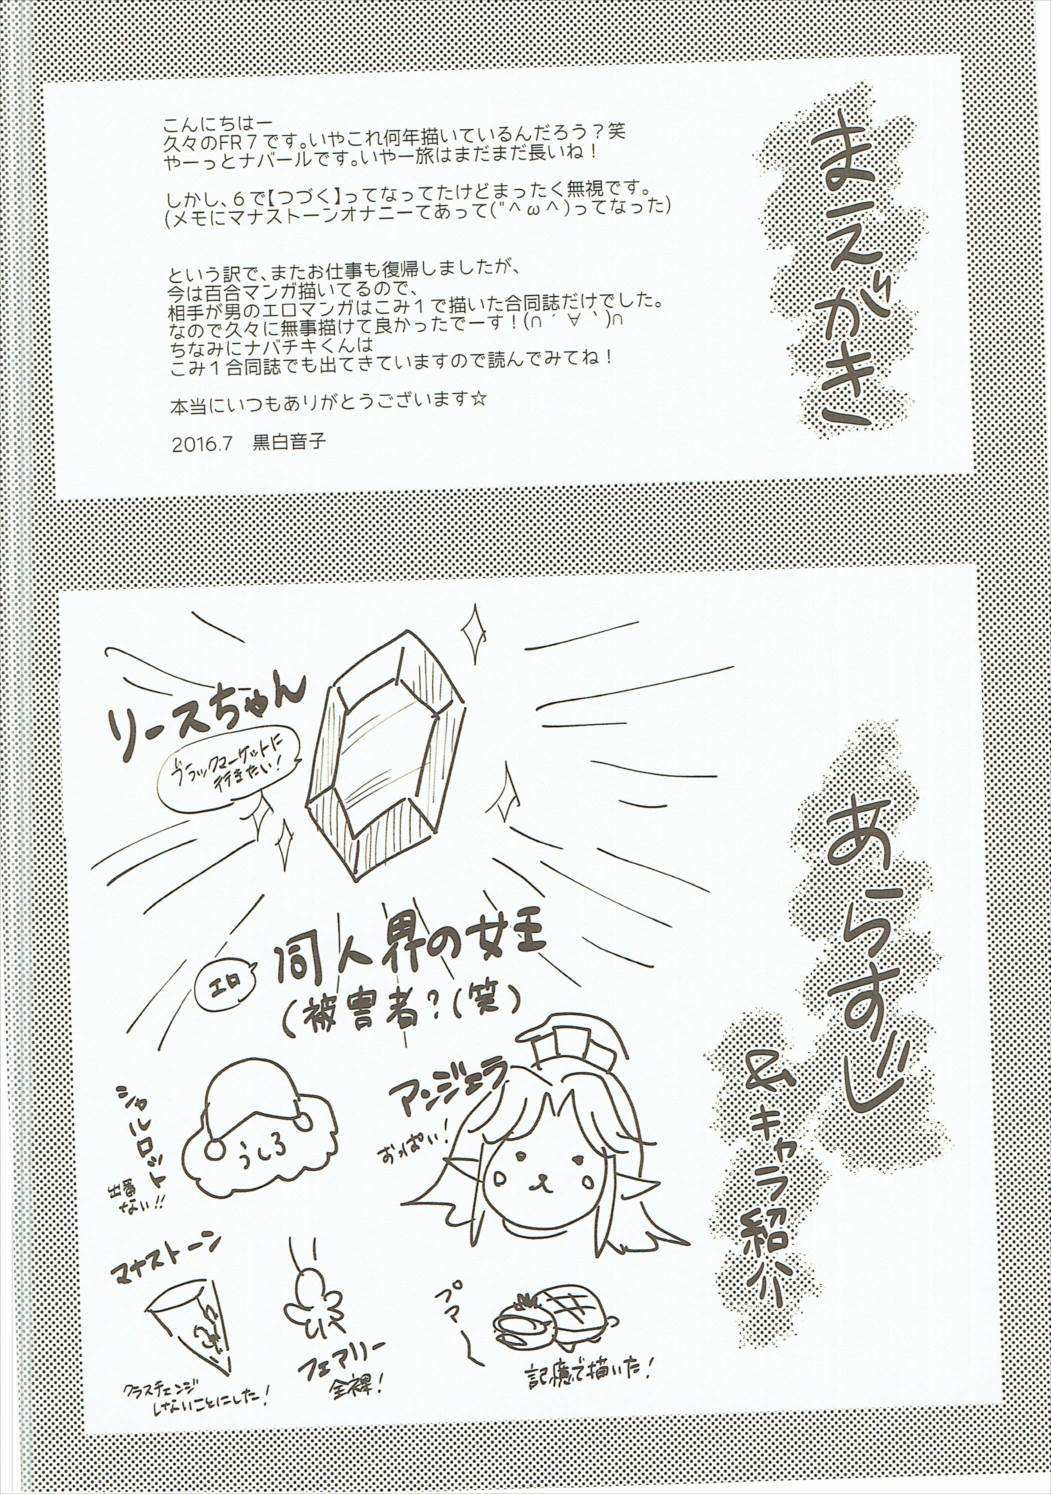 まえがき
こんにちはー
久々のFR7です。いやこれ何年描いているんだろう？笑
やーっとナバールです。いやー旅はまだまだ長いね！
しかし、6で【つづく】ってなってたけどまったく無視です。
(メモにマナストーンオナニーてあって("＾ω＾)ってなった)
という訳で、またお仕事も復帰しましたが、
今は百合マンガ描いてるので、
相手が男のエロマンガはこみ1で描いた合同誌だけでした。
なので久々に無事描けて良かったでーす！(∩´∀｀)∩
ちなみにナバチキくんは
こみ1合同誌でも出てきていますので読んでみてね！
本当にいつもありがとうございます☆
2016.7　黒白音子
あらすじ
&キャラ紹介
リースちゃん
ブラックマーケットに
行きたい！
エロ
同人界の女王
(被害者?(笑)
アンジェラ
おっぱい！
シャルロット
出番
ない!!
うしろ
マナストーン
クラスチェンジ
しないことにした！
フェアリー
全裸！
ブマー
記憶で描いた！